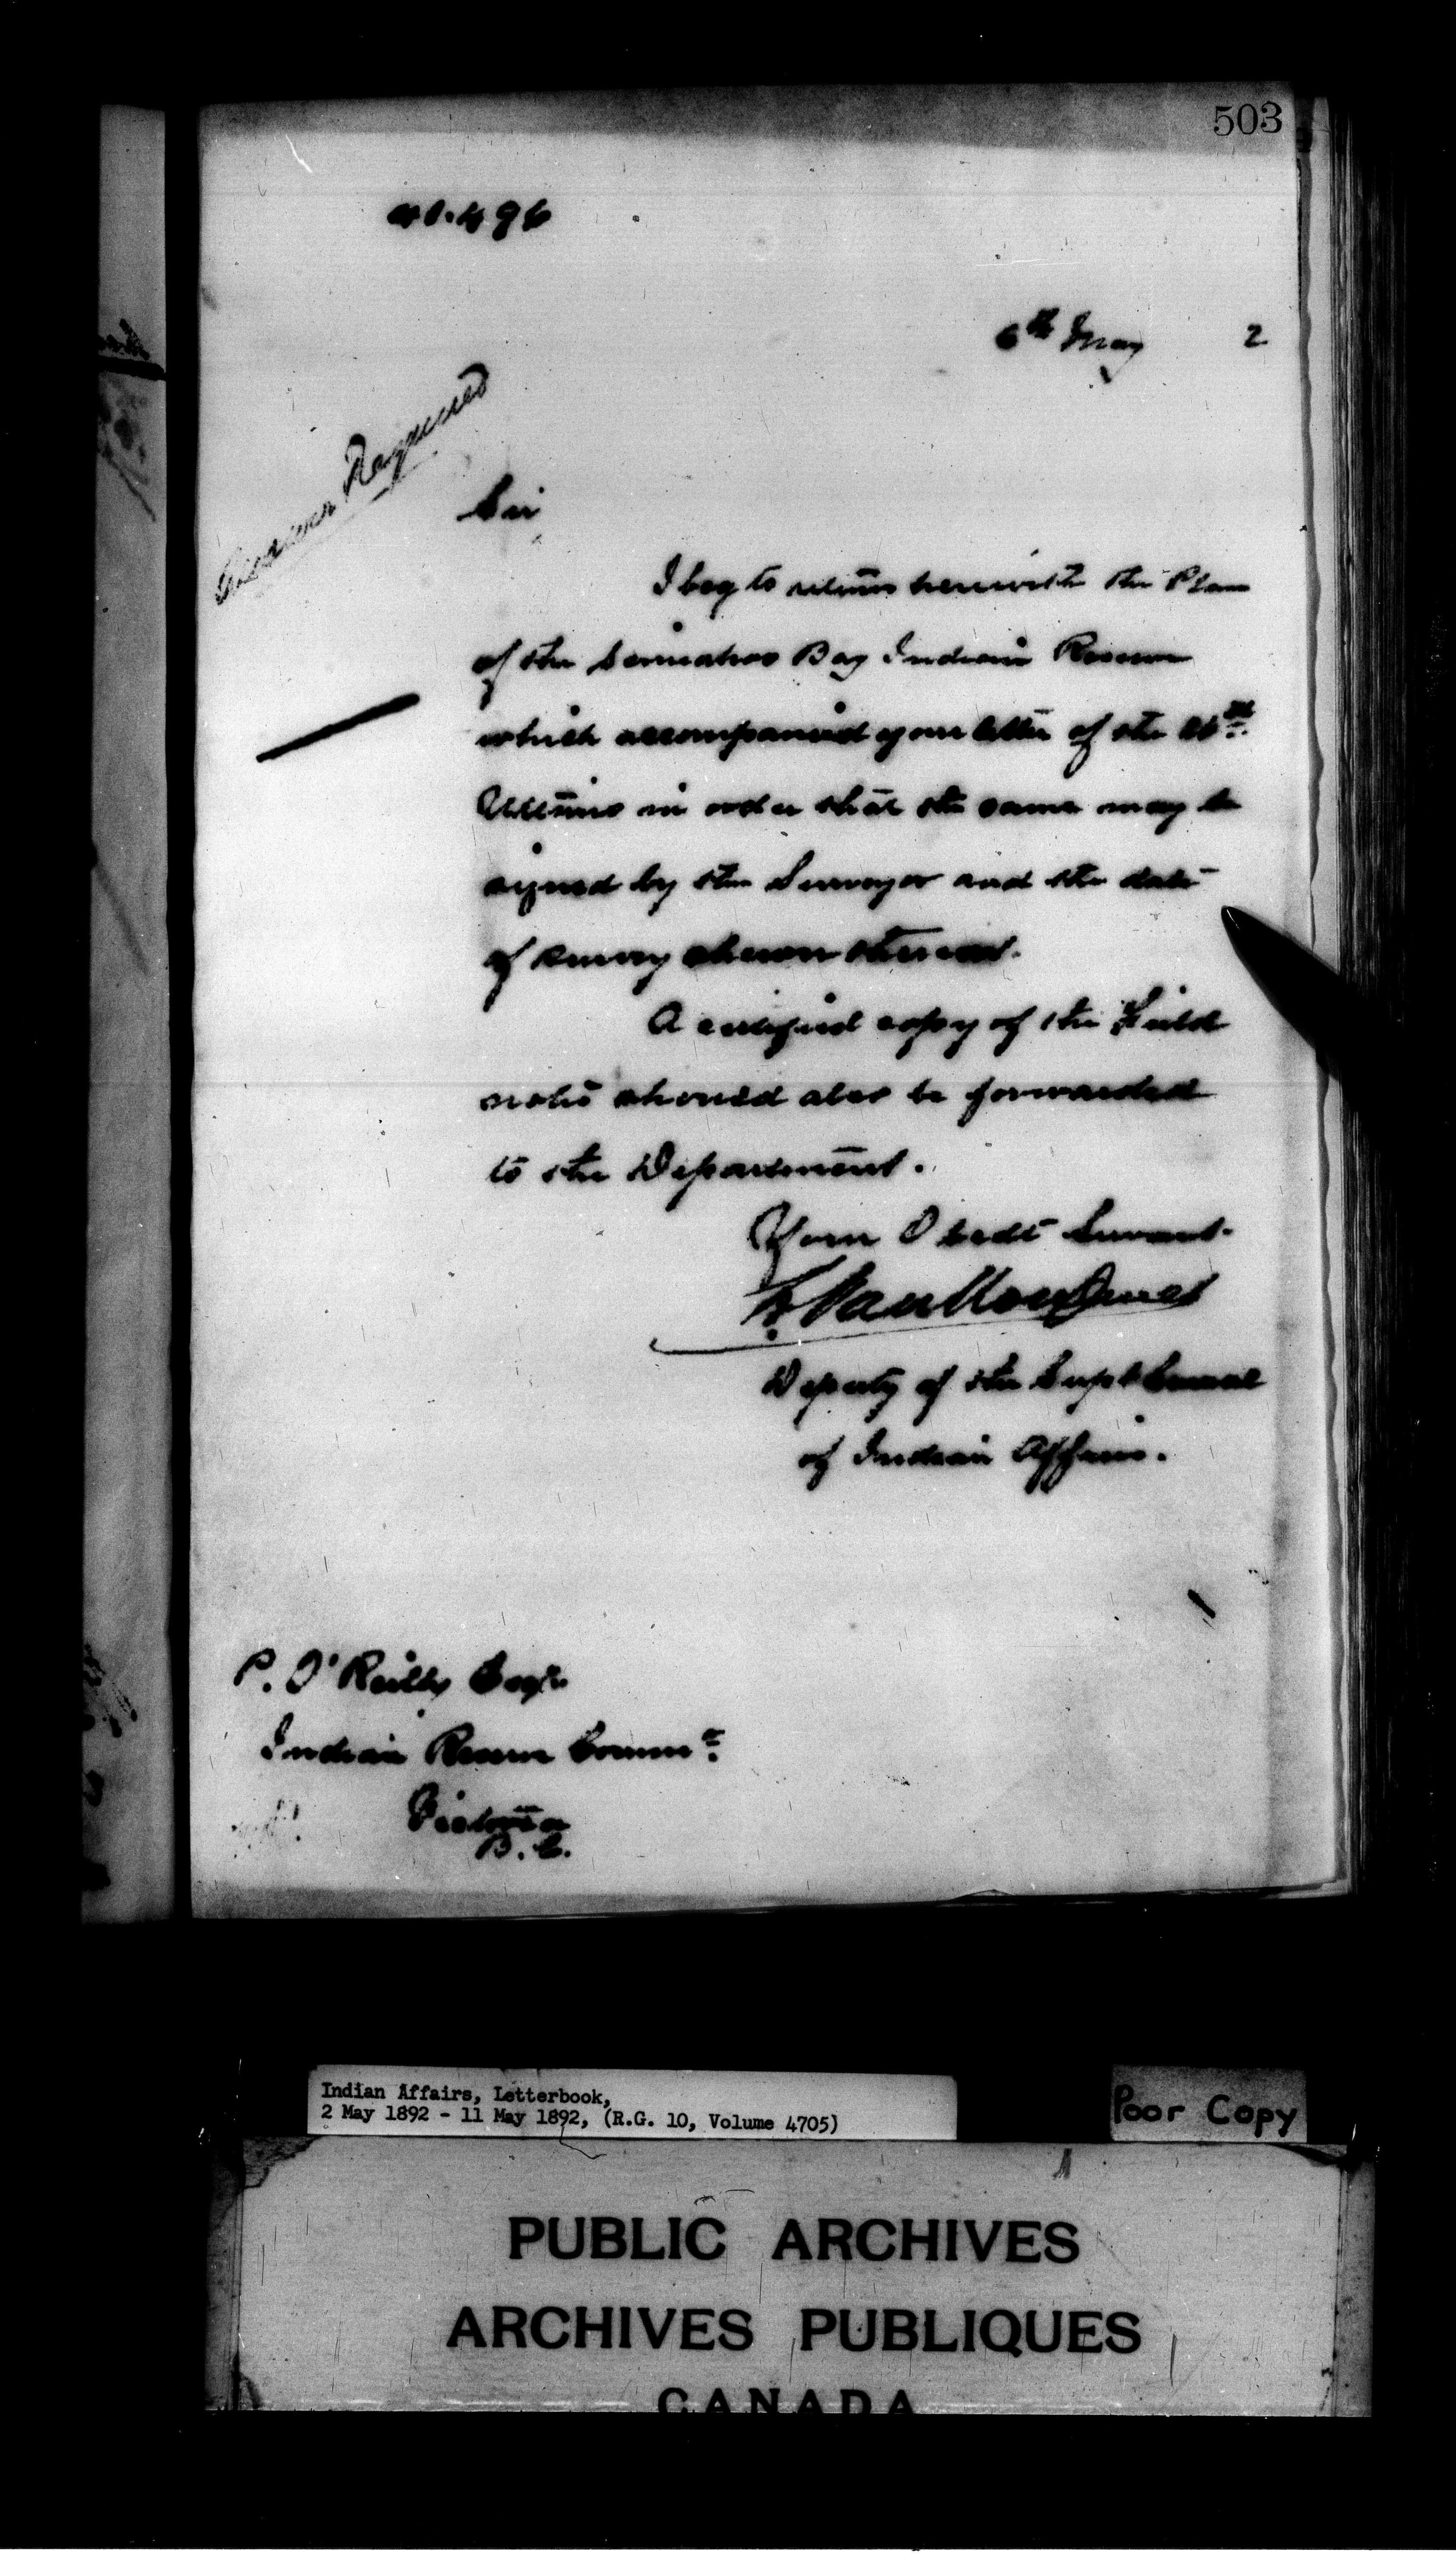 503
6th May 2
Required
Sir
I beg to return herewith the Plan
of the Semiahmoo Bay Indian Reserve
which accompanied your letter of the
Ultimo in order that the same may be
signed by the Surveyor and the date
of survey shewn thereon.
A certified copy of the Field
notes should also be forwarded
to the Department.
Your Obedt Servant.
L. Vankoughnet
Deputy of the Supt General
of Indian Affairs.
P. O'Reilly Esqr
Indian Reserve Commr
Victoria
B.C.
Indian Affairs, Letterbook,
2 May 1892 - 11 May 1892, (R.G. 10, Volume 4705)
Poor Copy
PUBLIC ARCHIVES
ARCHIVES PUBLIQUES
CANADA